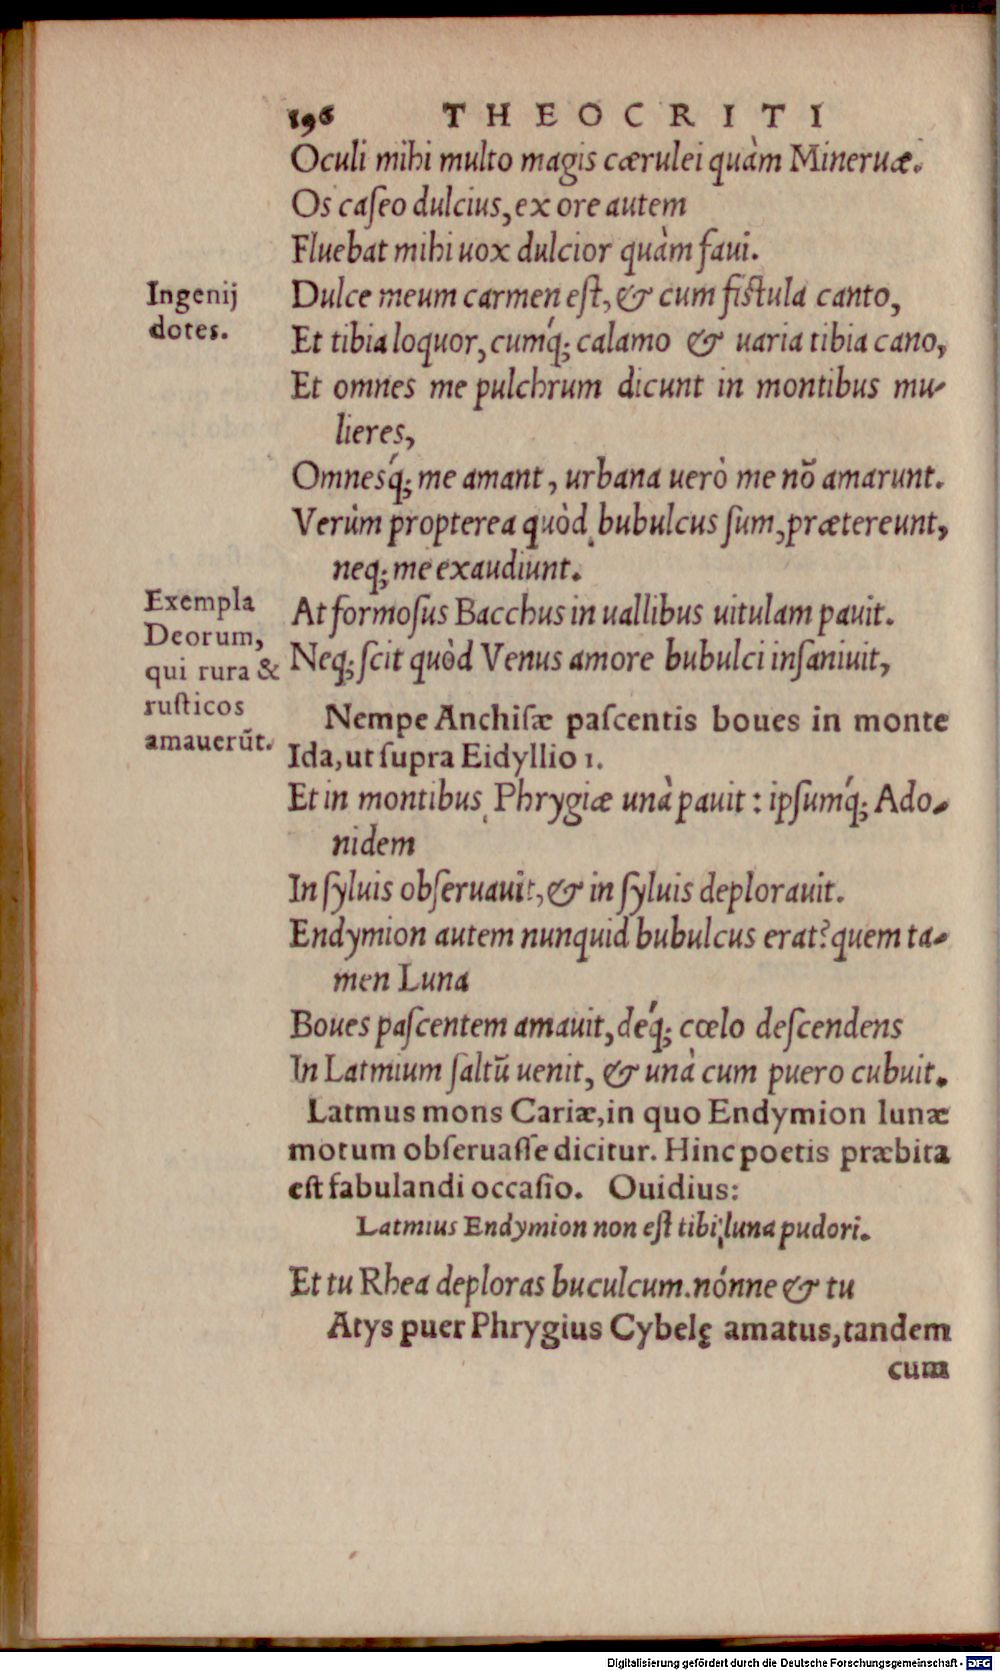 196 THEOCRITI
Oculi mihi multo magis cærulei quàm Mineruæ.
Os caſeo dulcius, ex ore autem
Fluebat mihi uox dulcior quàm faui.
Ingenij
dotes.
Dulce meum carmen eſt, & cum fiſtula canto,
Et tibia loquor, cumq́; calamo & uaria tibia cano,
Et omnes me pulchrum dicunt in montibus mu-
lieres,
Omnesq́; me amant, urbana uerò me nõ amarunt.
Verùm propterea quòd bubulcus ſum, prætereunt,
neq; me exaudiunt.
Exempla
Deorum,
qui rura &
ruſticos
amauerũt.
At formoſus Bacchus in uallibus uitulam pauit.
Neq; ſcit quòd Venus amore bubulci inſaniuit,
Nempe Anchiſæ paſcentis boues in monte
Ida, ut ſupra Eidyllio 1.
Et in montibus Phrygiæ unà pauit: ipſumq́; Ado-
nidem
In ſyluis obſeruauit, & in ſyluis deplorauit.
Endymion autem nunquid bubulcus erat? quem ta-
men Luna
Boues paſcentem amauit, deq́; cœlo deſcendens
In Latmium ſaltũ uenit, & unà cum puero cubuit.
Latmus mons Cariæ, in quo Endymion lunæ
motum obſeruaſſe dicitur. Hinc poetis præbita
eſt fabulandi occaſio. Ouidius:
Latmius Endymion non eſt tibi luna pudori.
Et tu Rhea deploras buculcum. nónne & tu
Atys puer Phrygius Cybelę amatus, tandem
cum
Digitalisierung gefördert durch die Deutsche Forschungsgemeinschaft - DFG